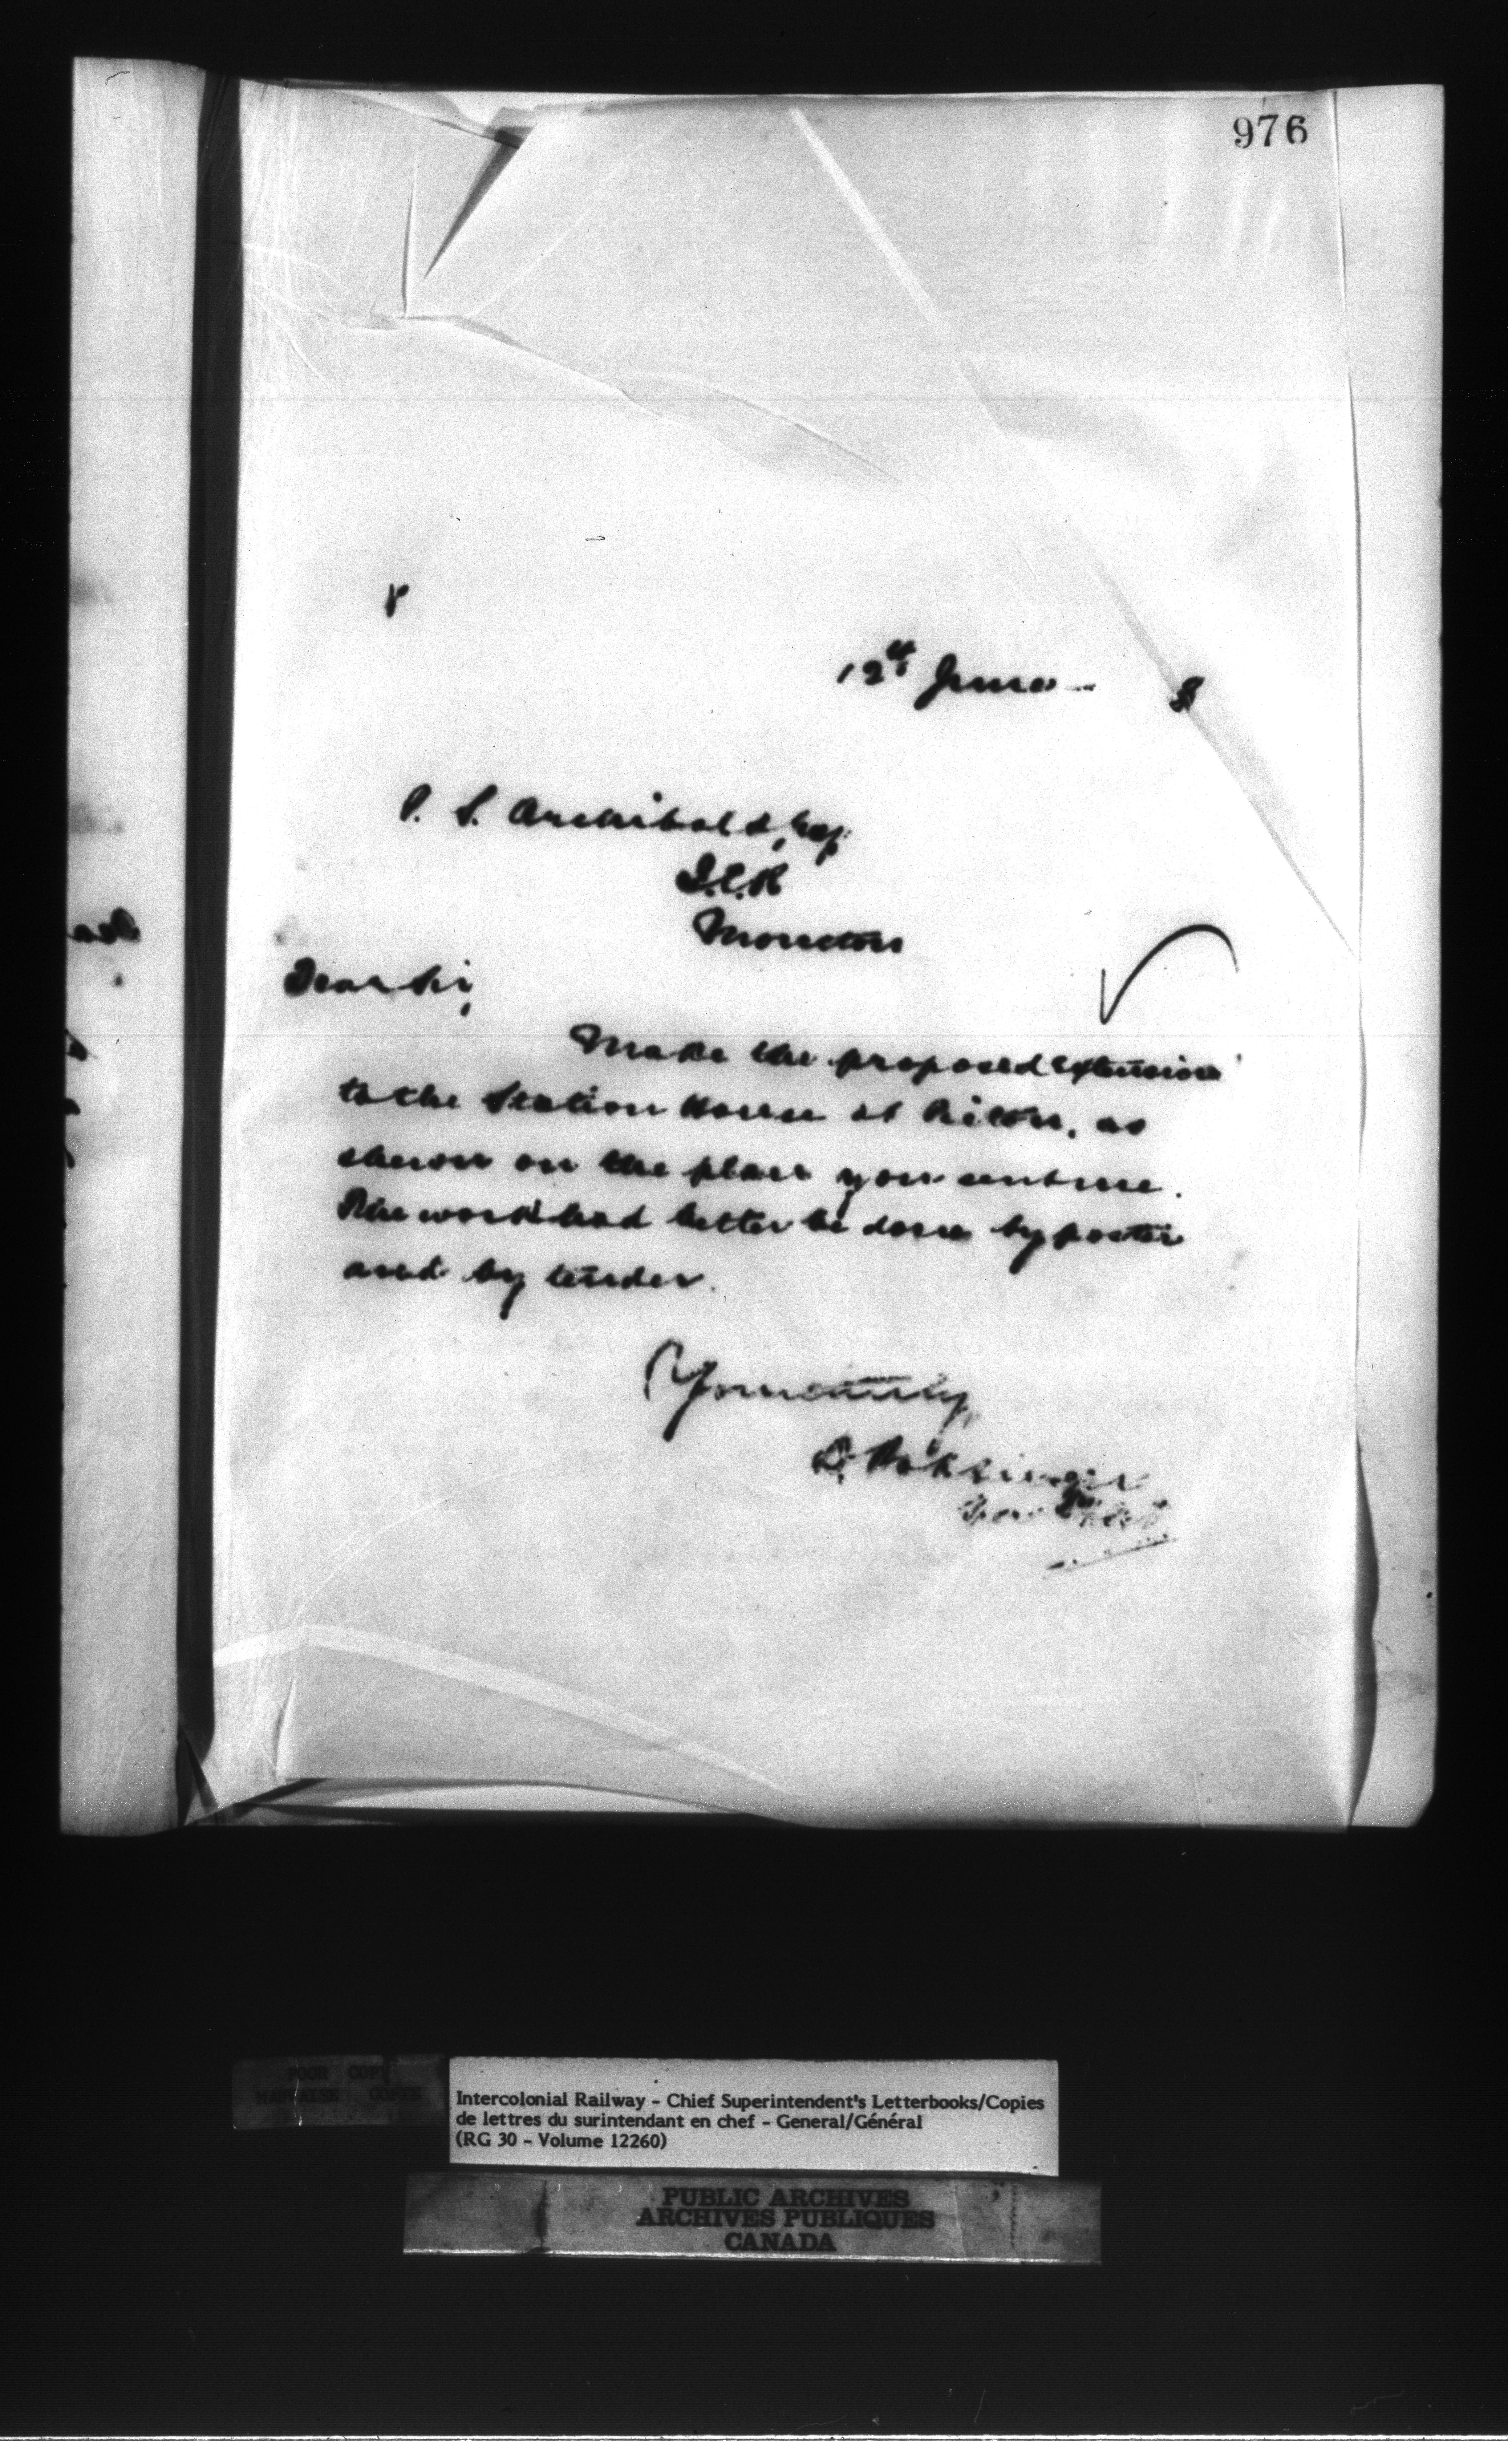 976
12th June 8
P. S. Archibald, Esq
I.C.R
Moncton
Dear Sir,
Make the proposed extension
to the Station House at as
shewn on the plan you sent me.
The work had better be done by poster
and by tender.
Yours truly,
D. Pottinger
POOR COPY
MAUVAISE COPIE
Intercolonial Railway - Chief Superintendent's Letterbooks/Copies
de lettres du surintendant en chef - General/Général
(RG 30 - Volume 12260)
PUBLIC ARCHIVES
ARCHIVES PUBLIQUES
CANADA